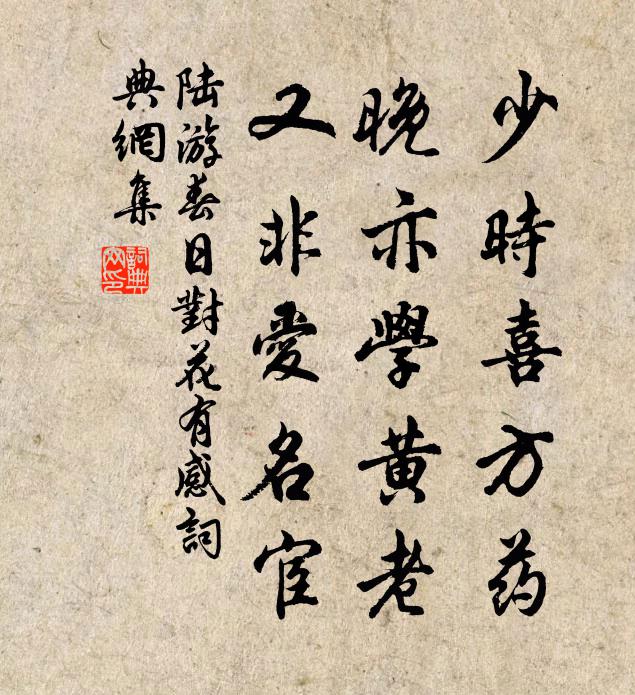 少時喜方药
晚亦學黄老
又非愛名宦
陆游春日對花有感詞
典網集
詞典
网印